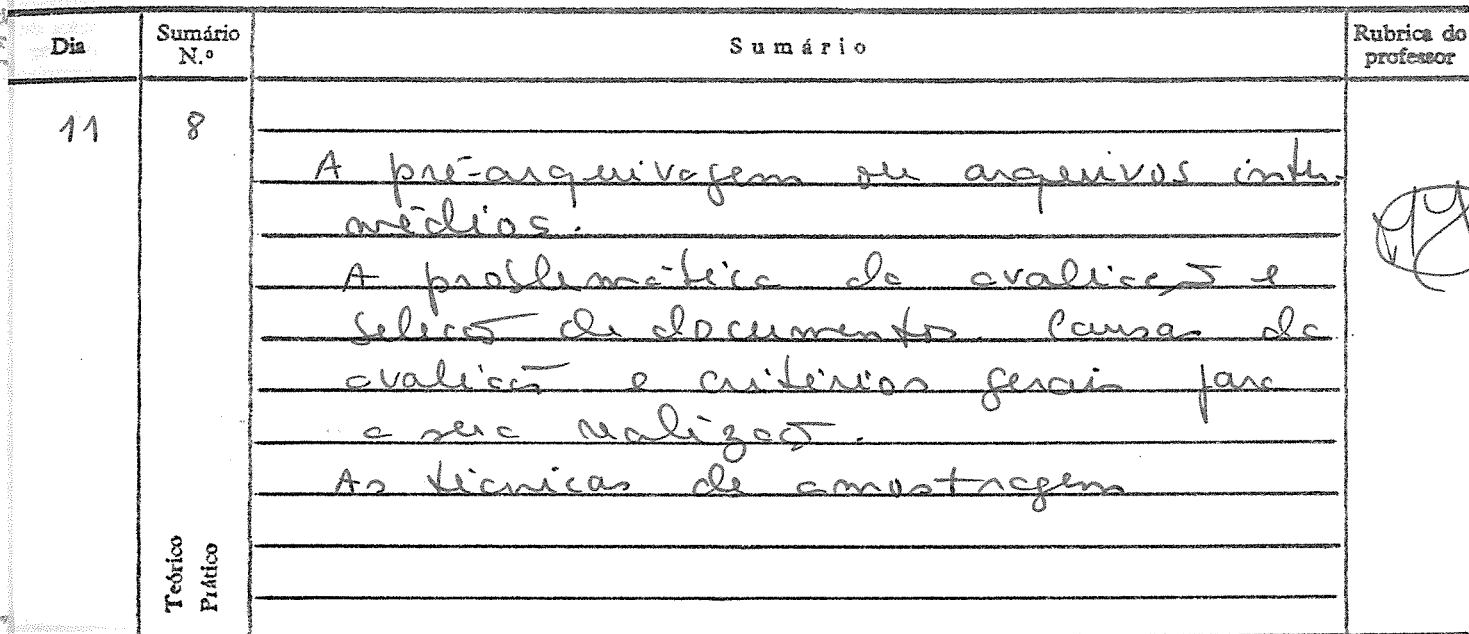 Dia
Sumário N.º
Sumário
Rubrica do professor
11
8
A pré-arquivagem ou arquivos inter-
médios.
A problemática da avaliação e
selecção de documentos. Causas da
avaliação e critérios gerais para
a sua realização.
As técnicas de amostragem
Teórico
Prático